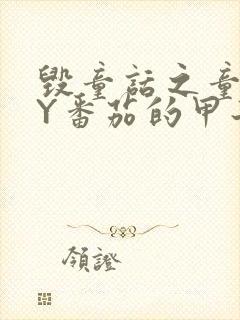 毀童話之童
Y番茄的甲
領證